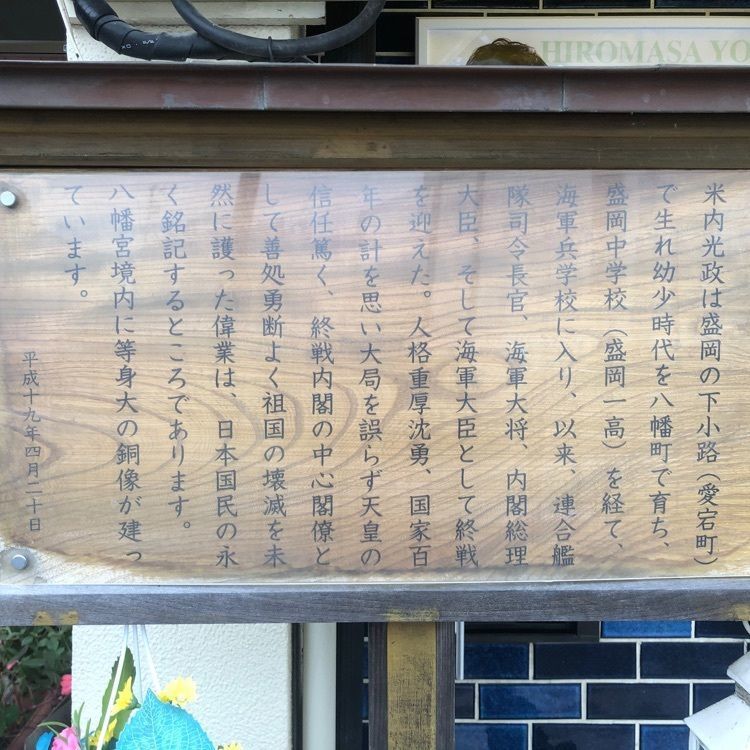 HIROMASA YO
米内光政は盛岡の下小路（愛宕町）
で生れ幼少時代を八幡町で育ち、
盛岡中学校（盛岡一高）を経て、
海軍兵学校に入り、以来、連合艦
隊司令長官、海軍大将、内閣総理
大臣、そして海軍大臣として終戦
を迎えた。人格重厚沈勇、国家百
年の計を思い大局を誤らず天皇の
信任篤く、終戦内閣の中心閣僚と
して善処勇断よく祖国の壊滅を未
然に護った偉業は、日本国民の永
く銘記するところであります。
八幡宮境内に等身大の銅像が建っ
ています。
平成十九年四月二十日